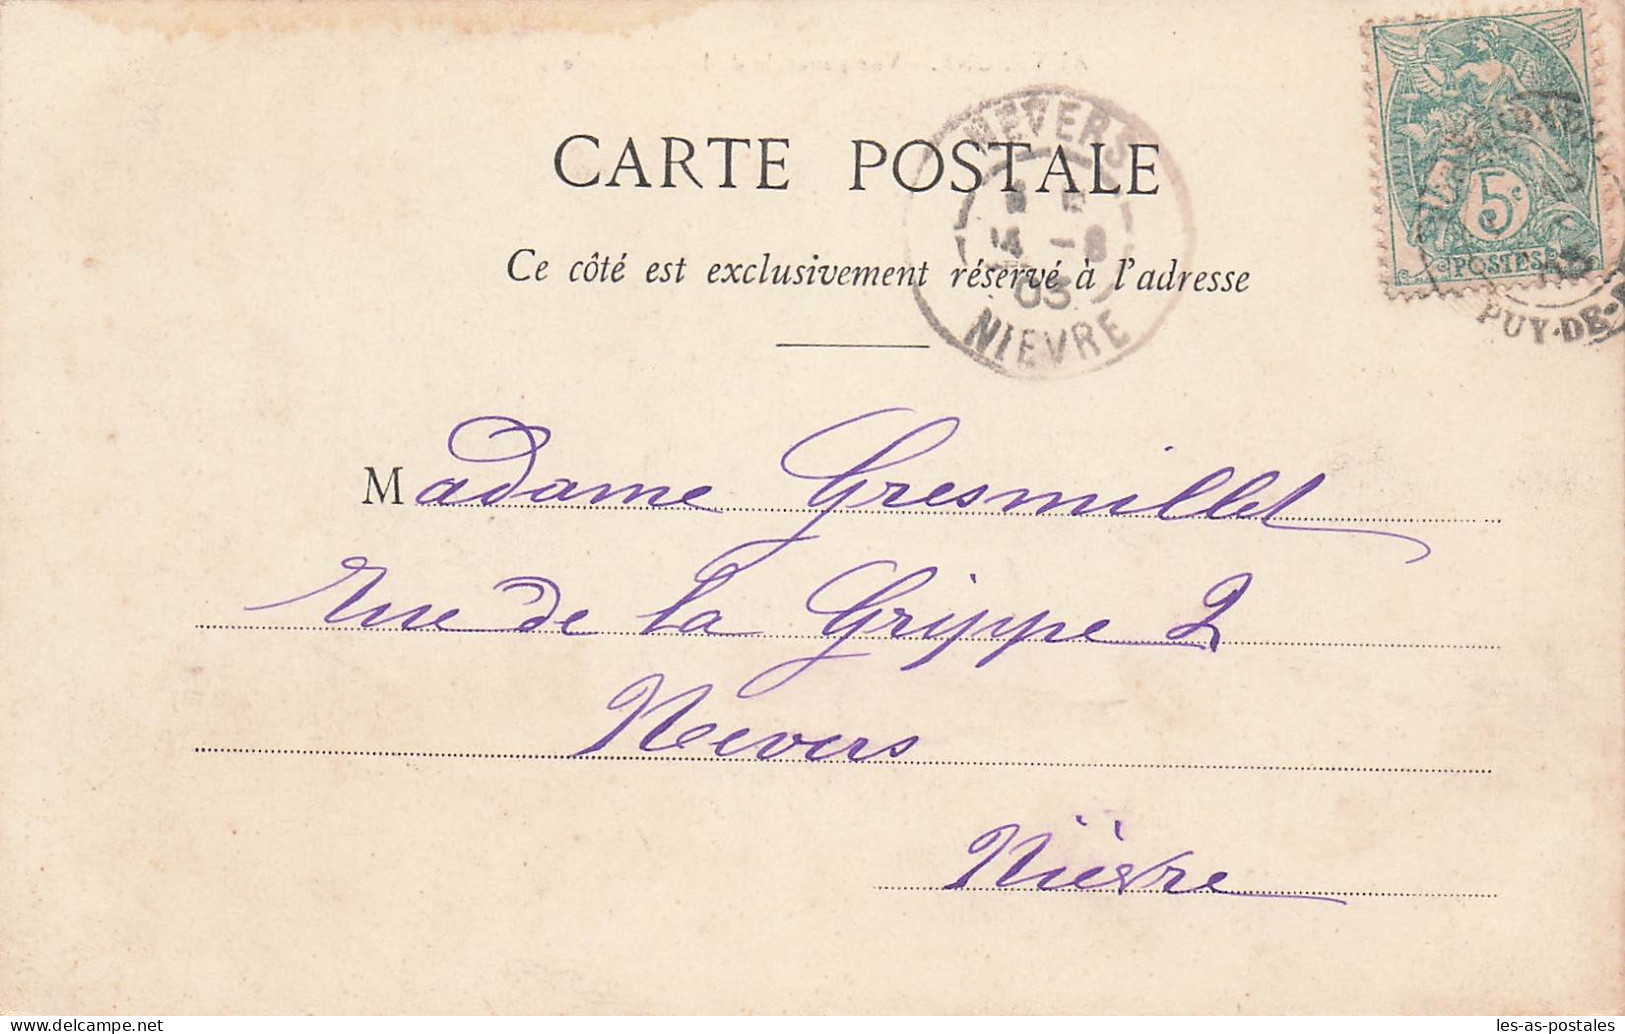 CARTE POSTALE
Ce côté est exclusivement réservé à l'adresse
NEVERS
14 -8
03
NIEVRE
5c
POSTES
PUY-DE-
Madame Gresmillet
rue de la Grippe 2
Nevers
Nièvre
les-as-postales